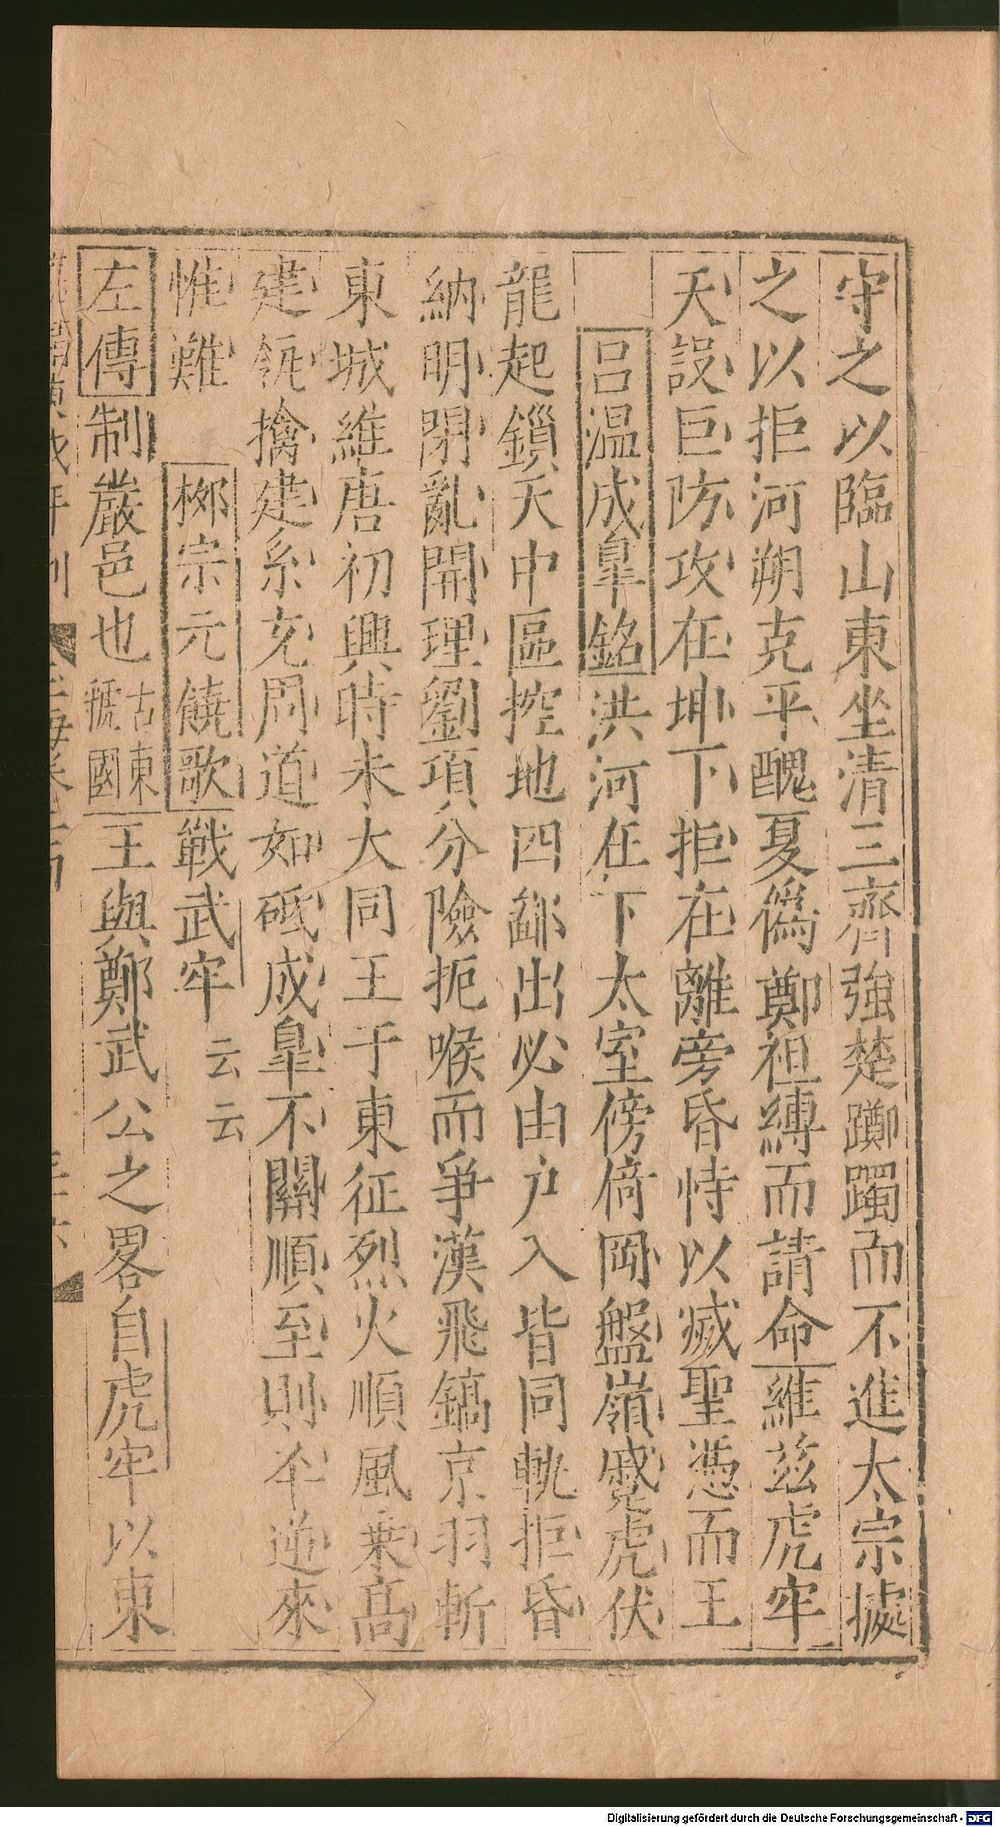 守之以臨山東坐清三齊強楚躑躅而不進太宗㨿
之以拒河朔克平醜夏僞鄭袒縛而請命維茲虎牢
天設巨防攻在坤下拒在離旁昏恃以滅聖憑而王
呂温成臯銘洪河在下太室傍倚岡盤嶺蹙虎伏
龍起鎖天中區控地四鄙出必由戸入皆同軌拒昏
納明閉亂開理劉項分險扼喉而爭漢飛鎬京羽斬
東城維唐初興時未大同王于東征烈火順風乗高
建瓴擒建系充周道如砥成臯不關順至則平逆來
惟難 栁宗元饒歌戰武牢云云
左傳制巖邑也古東虢國王與鄭武公之畧自虎牢以東
Digitalisierung gefördert durch die Deutsche Forschungsgemeinschaft - DFG